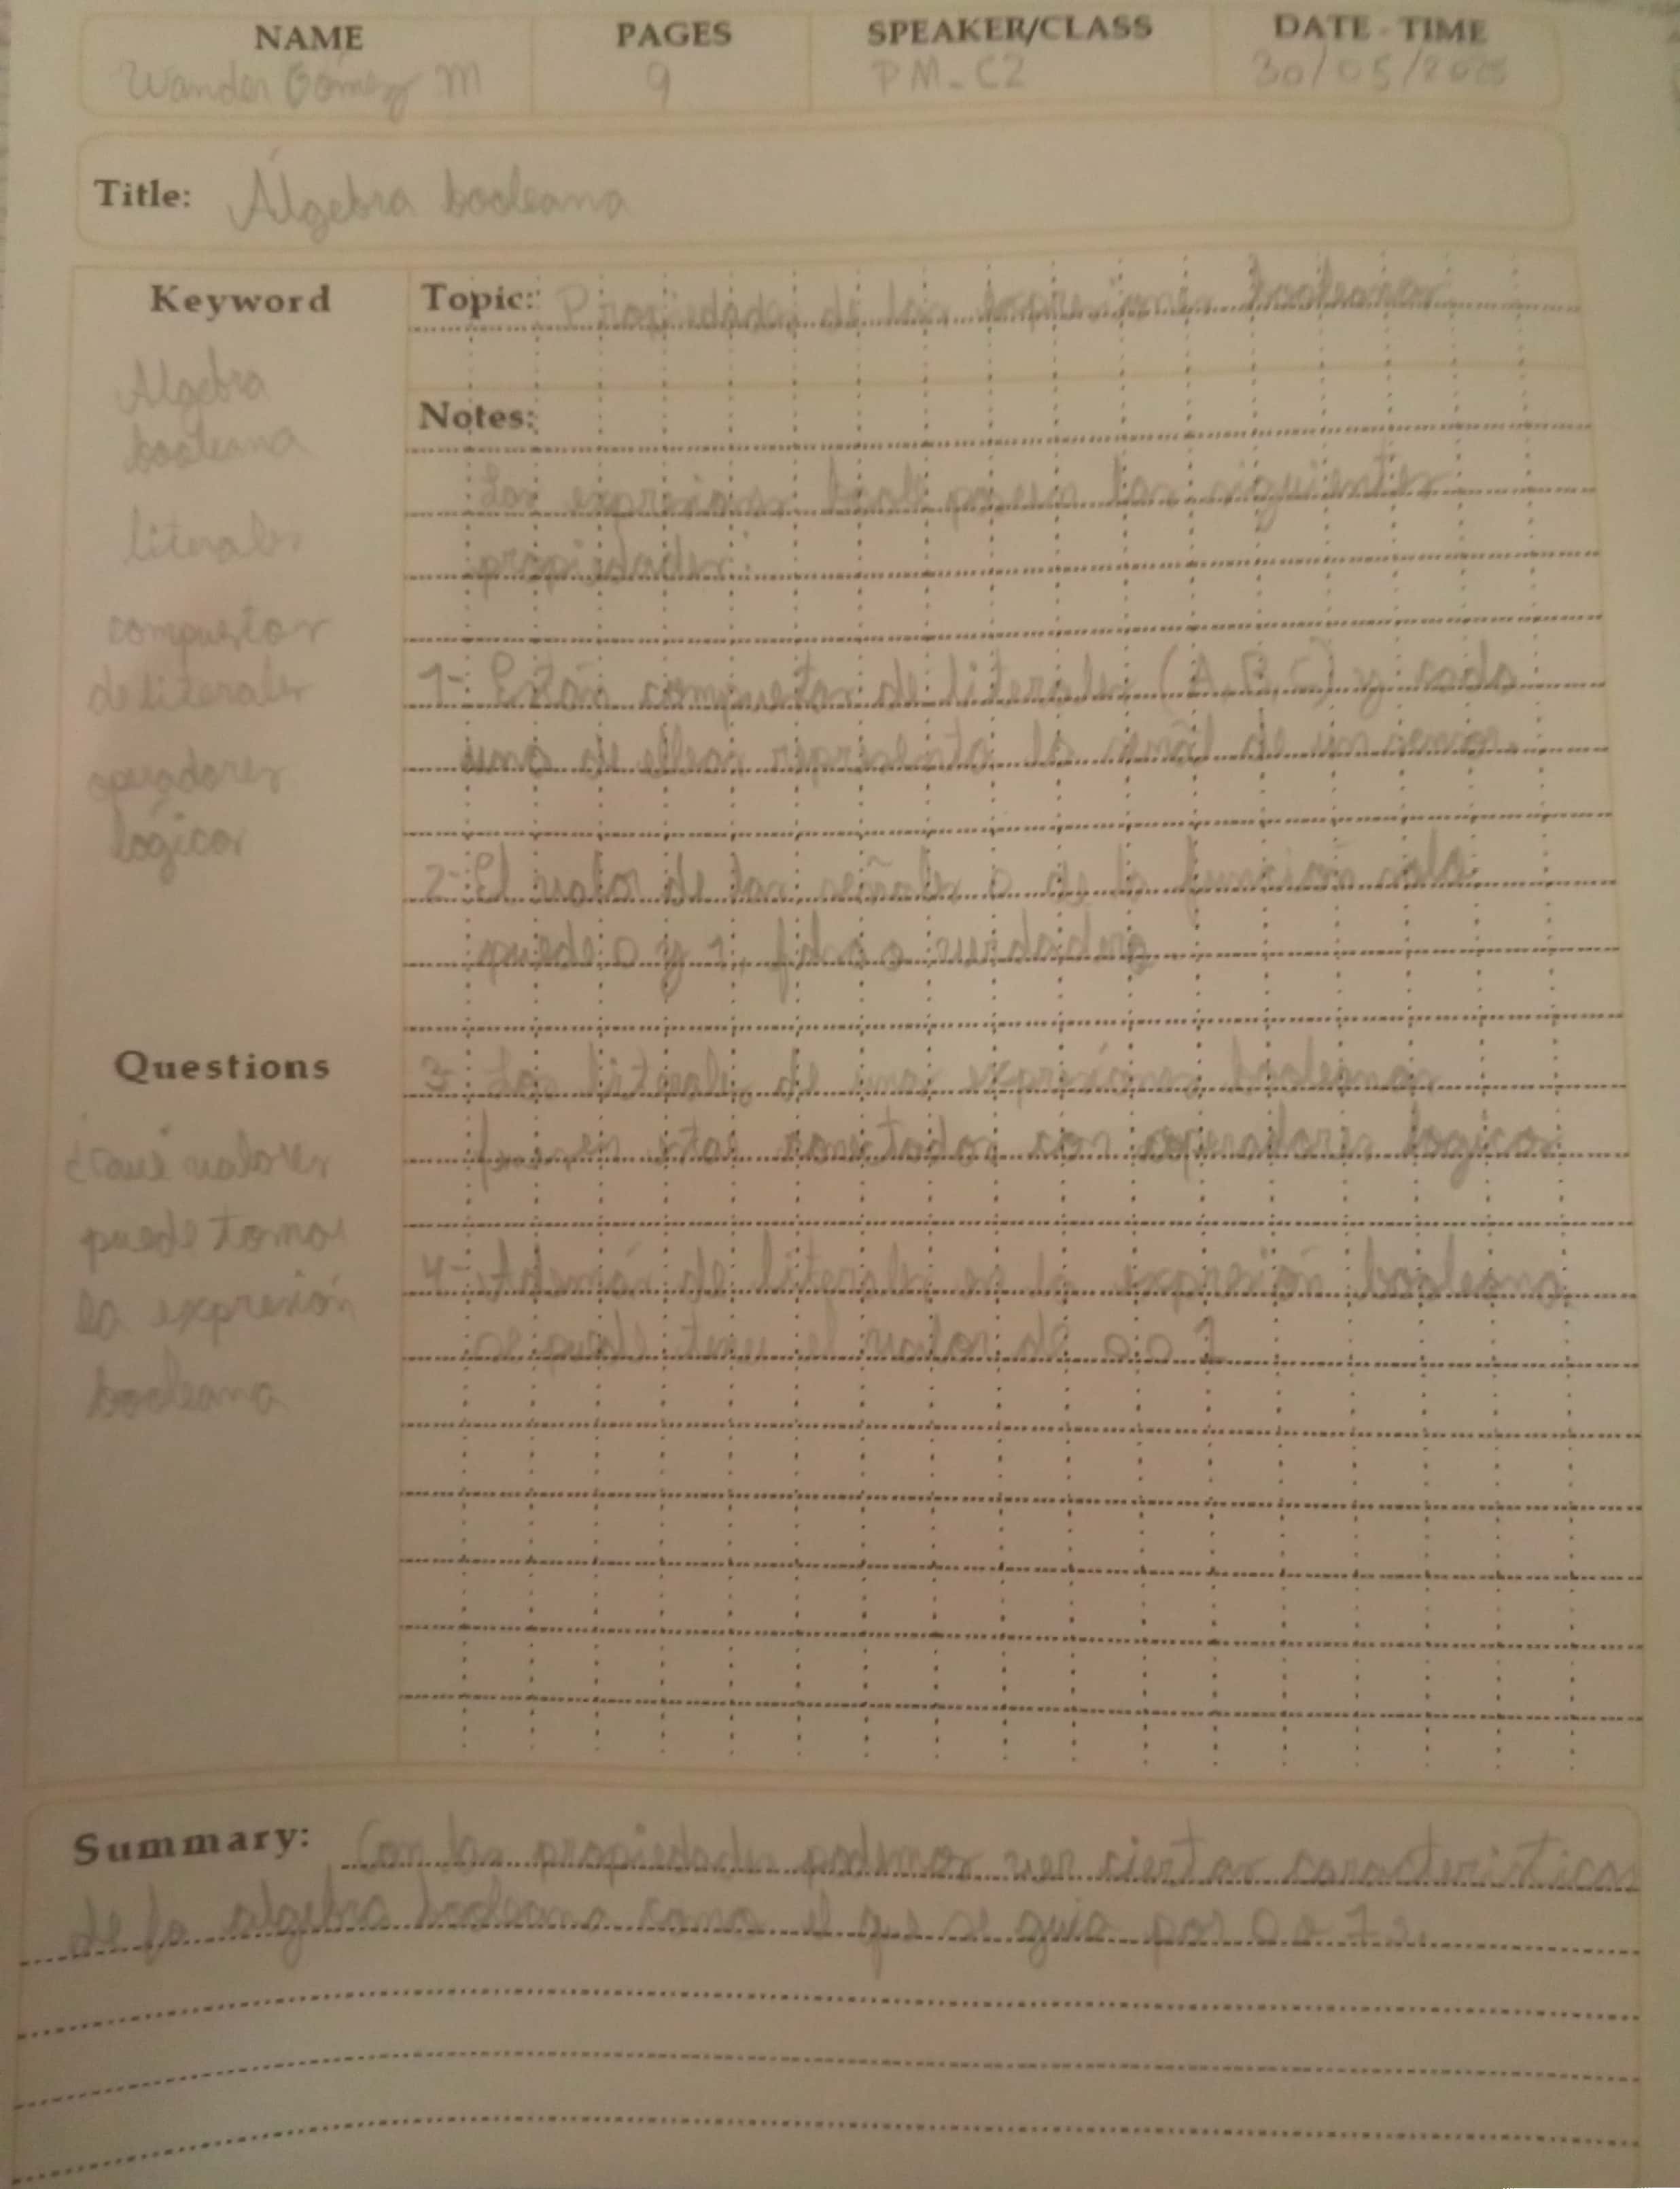 NAME PAGES SPEAKER/CLASS DATE - TIME
Wander Gómez M 9 PM-C2 30/05/2025
Title: Álgebra booleana
Keyword
Álgebra
booleana
literales
compuestas
de literales
operadores
lógicos
Topic: Propiedades de las expresiones booleanas
Notes:
Las expresiones bool poseen las siguientes
propiedades:
1- Están compuestas de literales (A, B, C) y cada
una de ellas representa la señal de un sensor.
2- El valor de las señales o de la función solo
puede 0 y 1, falso o verdadero
3- Los literales de una expresiones booleanas
estar conectados con operadores logicos
4- Además de literales en la expresión booleana
se puede tener el valor de 0 o 1
Questions
¿Qué valores
puede tomar
la expresión
booleana
Summary: Con las propiedades podemos ver ciertas caracteristicas
de la algebra booleana como el que se guia por 0 o 1